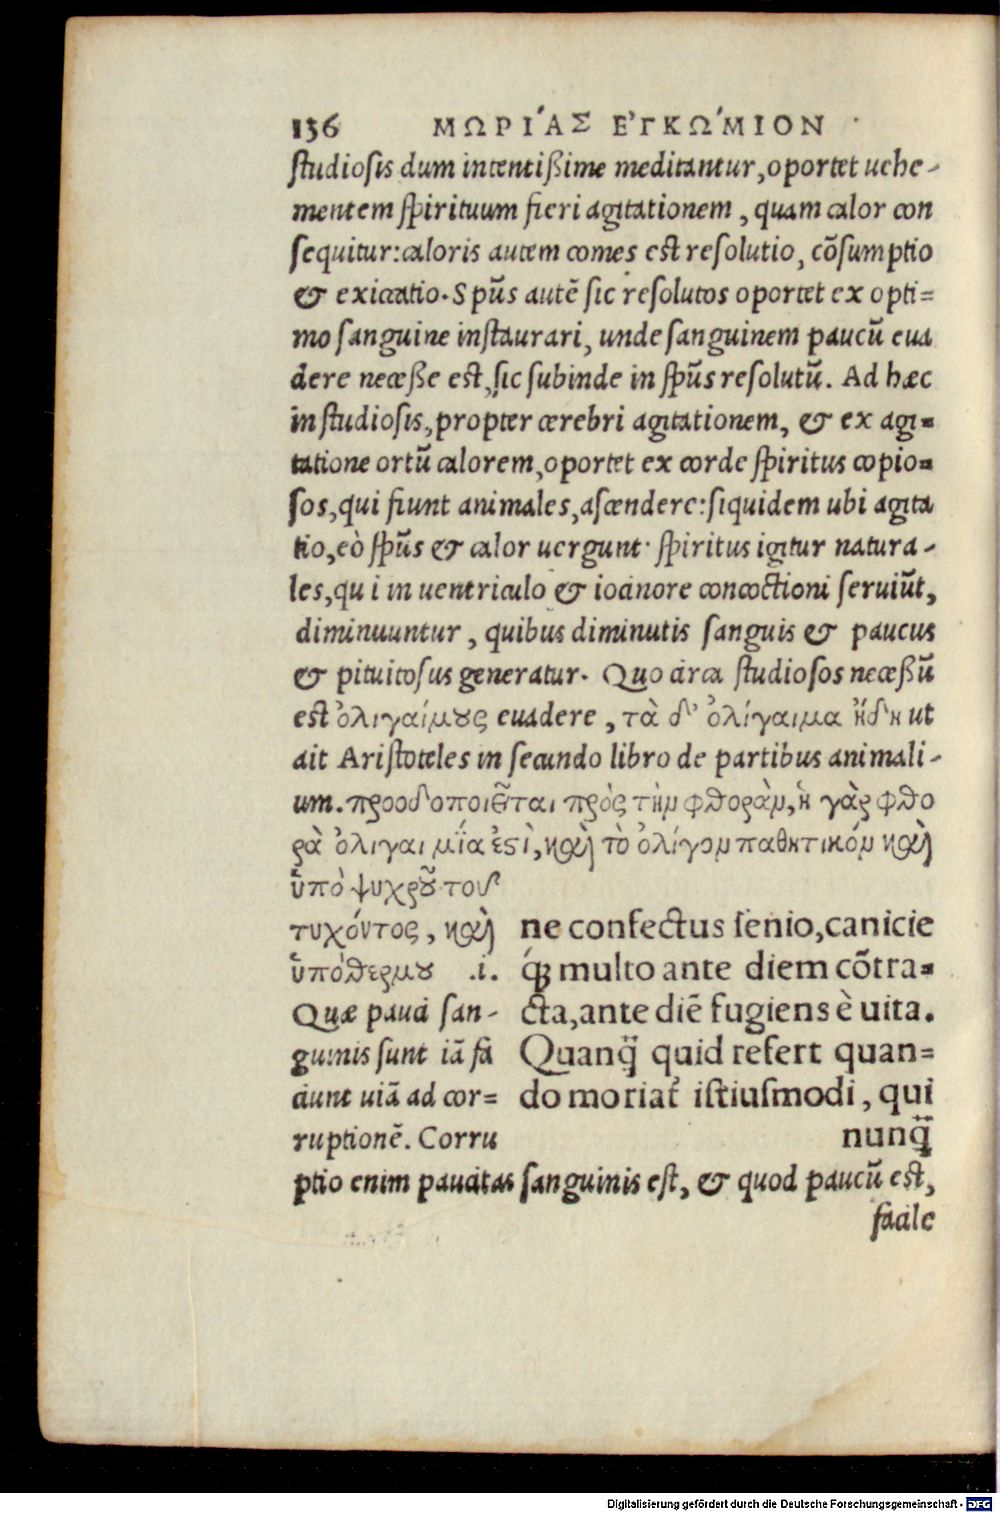 136 ΜΩΡΙ´ΑΣ Ε᾽ΓΚΩ´ΜΙΟΝ
studiosis dum intentißime meditantur, oportet uehe-
mentem spirituum fieri agitationem, quam calor con
sequitur: caloris autem comes est resolutio, cõsumptio
& exiccatio. Spũs autẽ sic resolutos oportet ex opti=
mo sanguine instaurari, unde sanguinem paucũ eua
dere neceße est, sic subinde in spũs resolutũ. Ad hæc
in studiosis, propter cerebri agitationem, & ex agi=
tatione ortũ calorem, oportet ex corde spiritus copio=
sos, qui fiunt animales, ascendere: siquidem ubi agita
tio, eò spũs & calor uergunt· spiritus igitur natura-
les, qui in uentriculo & iocinore concoctioni seruiũt,
diminuuntur, quibus diminutis sanguis & paucus
& pituitosus generatur. Quo circa studiosos neceßũ
est ὀλιγαίμους euadere, τὰ δ᾽ ὀλίγαιμα ἤδη ut
ait Aristoteles in secundo libro de partibus animali-
um. προοδοποιεῖται πρὸς τὴν φθορὰν, ἡ γὰρ φθο
ρὰ ὀλιγαιμΐα ἐστὶ, καὶ τὸ ὀλίγον παθητικόν καὶ
ὑπὸ ψυχροῦ τοῦ
τυχόντος, καὶ
ὑπὸ θερμου .i.
Quæ pauci san-
guinis sunt iã fa
ciunt uiã ad cor=
ruptionẽ. Corru
ne confectus senio, canicie
q́ꝫ multo ante diem cõtra=
cta, ante diẽ fugiens è uita.
Quanq̃ quid refert quan=
do moriat᷑ istiusmodi, qui
nunq̃
ptio enim paucitas sanguinis est, & quod paucũ est,
facile
Digitalisierung gefördert durch die Deutsche Forschungsgemeinschaft - DFG